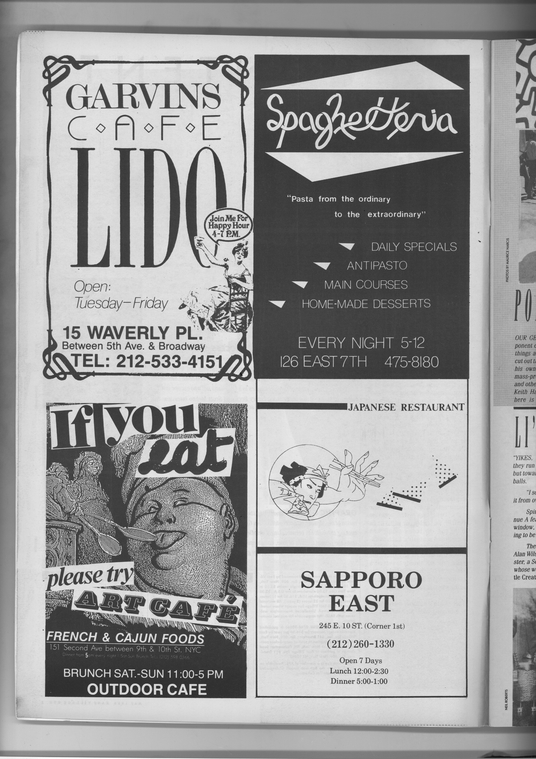 GARVINS
C·A·F·E
LIDO
Join Me For
Happy Hour
4-7 P.M.
Open:
Tuesday—Friday
15 WAVERLY PL.
Between 5th Ave. & Broadway
TEL: 212-533-4151
Spaghetteria
"Pasta from the ordinary
to the extraordinary"
DAILY SPECIALS
ANTIPASTO
MAIN COURSES
HOME-MADE DESSERTS
EVERY NIGHT 5-12
126 EAST 7TH 475-8180
If you
eat
please try
ART CAFÉ
FRENCH & CAJUN FOODS
151 Second Ave between 9th & 10th St., NYC
BRUNCH SAT.-SUN 11:00-5 PM
OUTDOOR CAFE
JAPANESE RESTAURANT
SAPPORO
EAST
245 E. 10 ST. (Corner 1st)
(212) 260-1330
Open 7 Days
Lunch 12:00-2:30
Dinner 5:00-1:00
PO
OUR GE
ponent o
things a
cut out t
his own
mass-pr
and othe
Keith Ha
here is
LI'
"YIKES,
they run
but towa
balls.
"I s
it from o
Spi
nue A fe
window,
ing to be
The
Alan Wh
ster, a S
whose w
tle Creat